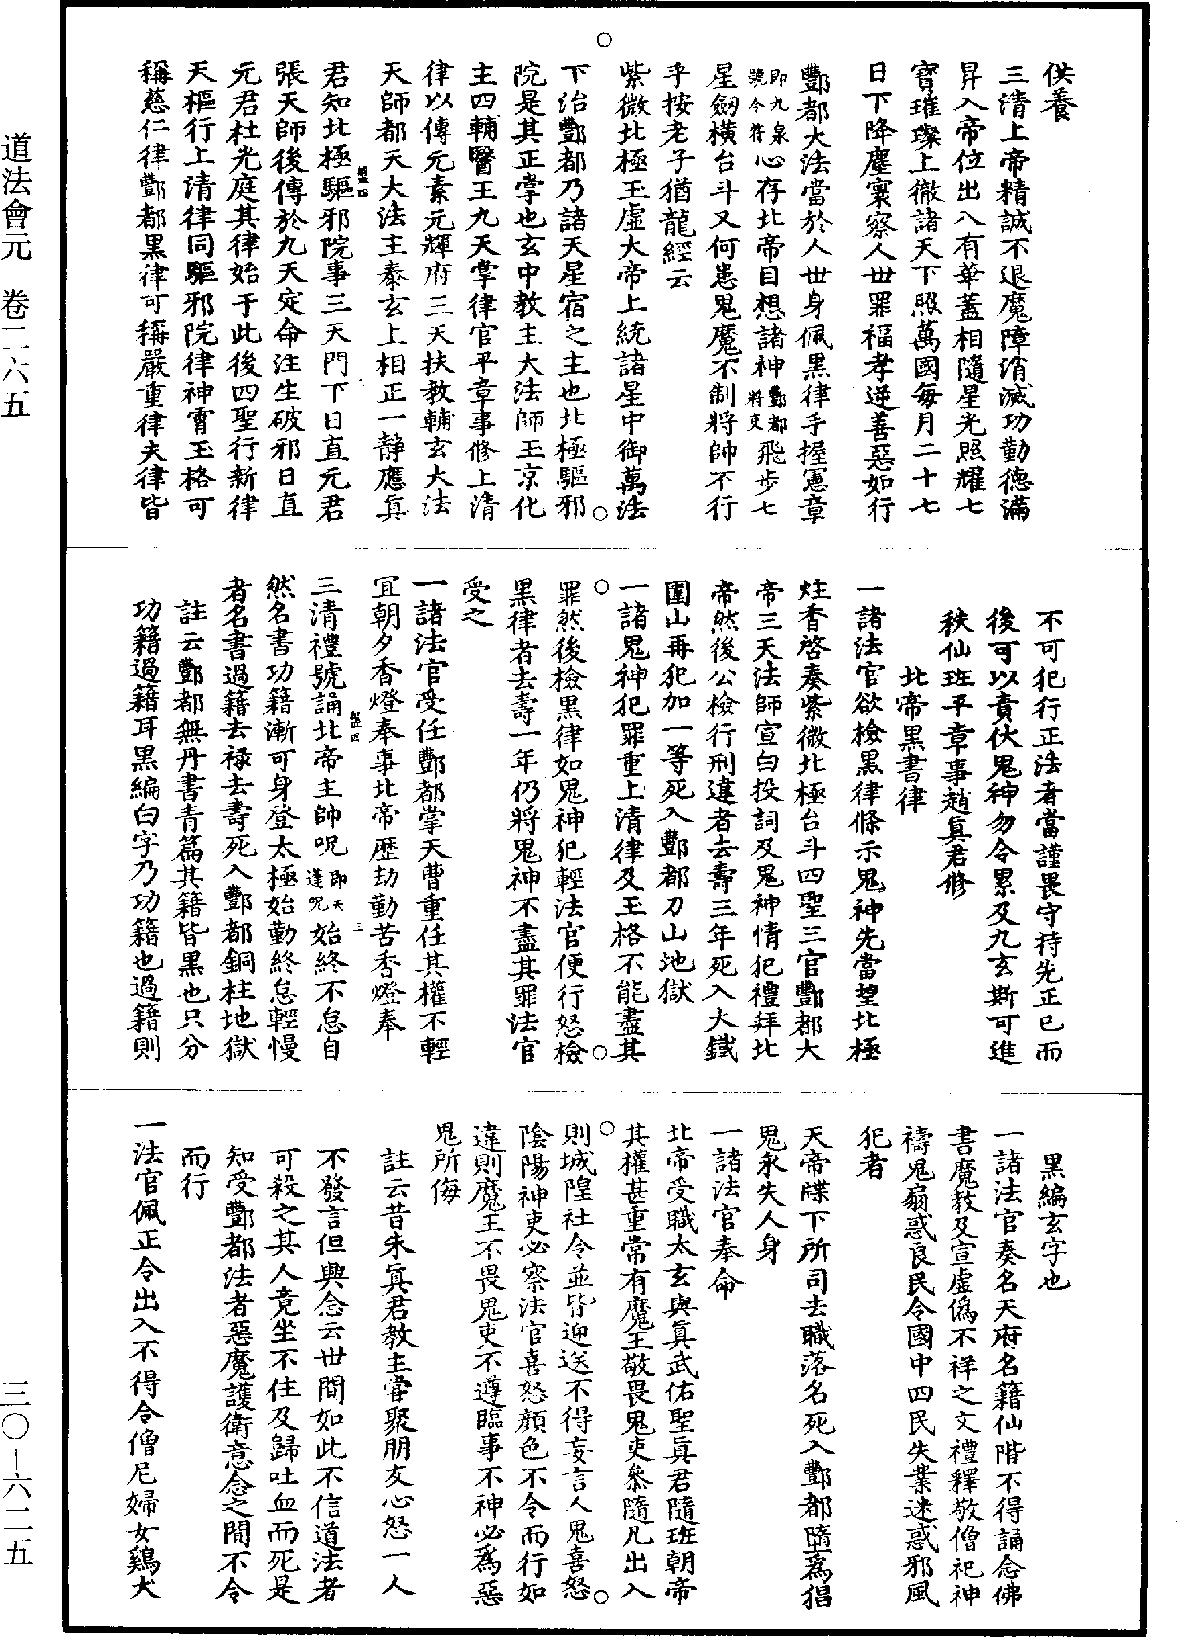 道法會元　卷二六五
三〇—六二五
供養
三清上帝精誠不退魔障消滅功勤德滿
昇入帝位出入有華蓋相隨星光照耀七
寶璀璨上徹諸天下照萬國每月二十七
日下降塵寰察人世罪福孝逆善惡如行
酆都大法當於人世身佩黑律手握憲章
即九泉號令符心存北帝目想諸神酆都將吏飛步七
星劒橫台斗又何患鬼魔不制將帥不行
乎按老子猶龍經云
紫微北極玉虛大帝上統諸星中御萬法
下治酆都乃諸天星宿之主也北極驅邪
院是其正掌也玄中教主大法師玉京化
主四輔醫王九天掌律官平章事修上清
律以傳元素元輝府三天扶教輔玄大法
天師都天大法主泰玄上相正一靜應真
君知北極驅邪院事三天門下日直元君
張天師後傳於九天定命注生破邪日直
元君杜光庭其律始于此後四聖行新律
天樞行上清律同驅邪院律神霄玉格可
稱慈仁律酆都黑律可稱嚴重律夫律皆
不可犯行正法者當謹畏守持先正己而
後可以責伏鬼神勿令累及九玄斯可進
秩仙班平章事趙真君修
北帝黑書律
一諸法官欲檢黑律條示鬼神先當望北極
炷香啓奏紫微北極台斗四聖三官酆都大
帝三天法師宣白投詞及鬼神情犯禮拜北
帝然後公檢行刑違者去壽三年死入大鐵
圍山再犯加一等死入酆都刀山地獄
一諸鬼神犯罪重上清律及玉格不能盡其
罪然後檢黑律如鬼神犯輕法官便行怒檢
黑律者去壽一年仍將鬼神不盡其罪法官
受之
一諸法官受任酆都掌天曹重任其權不輕
宜朝夕香燈奉事北帝歷劫勤苦香燈奉
三清禮號誦北帝主帥呪即天蓬呪始終不怠自
然名書功籍漸可身登太極始勤終怠輕慢
者名書過籍去祿去壽死入酆都銅柱地獄
註云酆都無丹書青篇其籍皆黑也只分
功籍過籍耳黑編白字乃功籍也過籍則
黑編玄字也
一諸法官奏名天府名籍仙階不得誦念佛
書魔教及宣虛偽不祥之文禮釋敬僧祀神
禱鬼扇惑良民令國中四民失業迷惑邪風
犯者
天帝牒下所司去職落名死入酆都墮爲倡
鬼永失人身
一諸法官奉命
北帝受職太玄與真武佑聖真君隨班朝帝
其權甚重常有魔王敬畏鬼吏叅隨凡出入
則城隍社令並皆迎送不得妄言人鬼喜怒
陰陽神吏必察法官喜怒顔色不令而行如
違則魔王不畏鬼吏不遵臨事不神必爲惡
鬼所侮
註云昔朱真君教主嘗聚朋友心怒一人
不發言但興念云世間如此不信道法者
可殺之其人竟坐不住及歸吐血而死是
知受酆都法者惡魔護衛意念之間不令
而行
一法官佩正令出入不得令僧尼婦女鷄犬